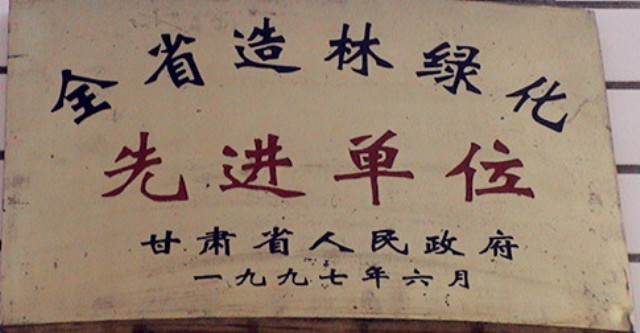 全省造林绿化
先进单位
甘肃省人民政府
一九九七年六月